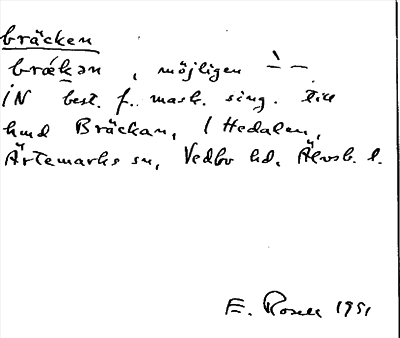 bräcken
brǽkən, möjligen – ̀ –
IN best. f. mask. sing. till
hmd Bräckan, i Hedalen,
Ärtemarks sn, Vedbo hd, Älvsb. l.
E. Rosell 1951